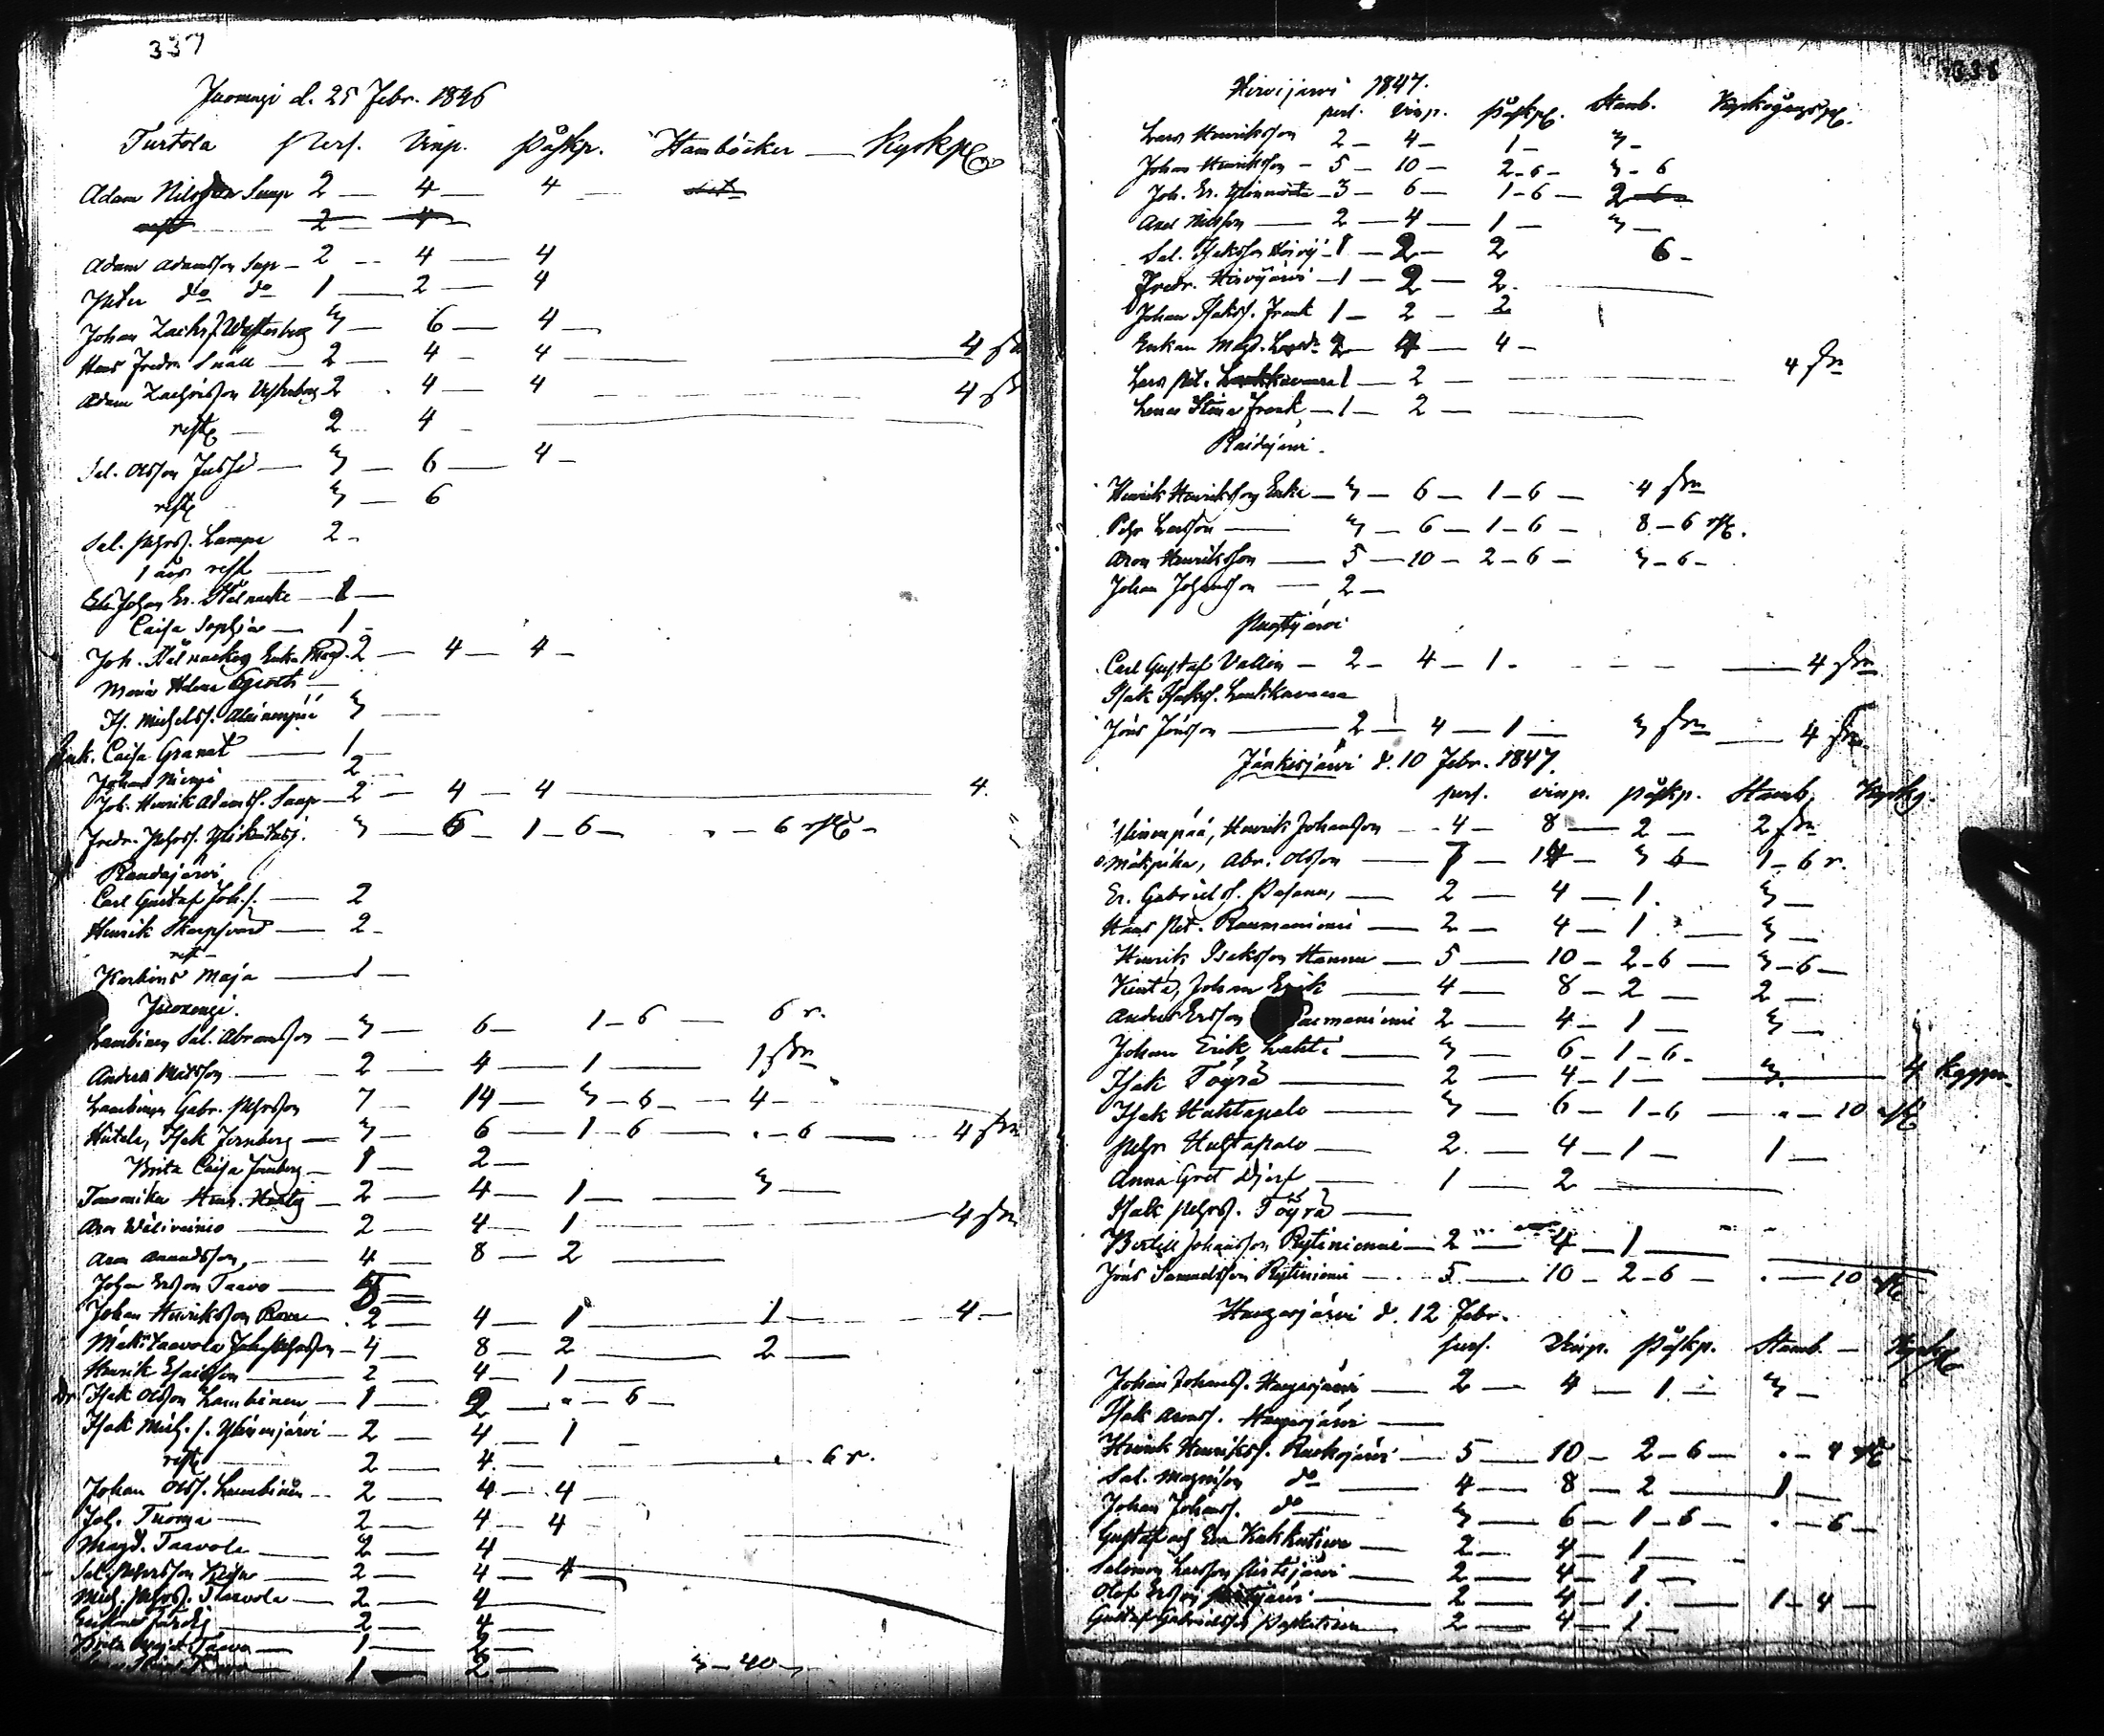 337
Juoxengi d. 25 Febr. 1846
Turtola Pers. Vinp. Påskp. Stamböcker — Kyrkpg
Adam Nilsson Snup 2 — 4 — 4 —
rest 2 — 4 —
Adam Adamsson Sup — 2 -- 4 — 4
Petter do do 1 — 2 — 4
Johan Zachrs. Westerberg 3 — 6 — 4 —
Hans Fredr. Snäll — 2 — 4 — 4 — 4 st
Adam Zachrisson Vesterberg 2 . 4 — 4 — 4 st
rest — 2 — 4 —
Sal. Olsson Jussi — 3 — 6 — 4 —
rest 3 — 6
Sal. Pehrss. Lampa 2 -
1 års rest —
Johan Er. Stålnacke — 1 —
Caisa Sophia — 1 -
Joh. Stålnackes Enka Magd. 2 — 4 — 4 —
Maria Helena —
Is. Michelss. Alainenpää 3 —
Enk. Caisa Granat — 1 —
Johan Niemi 2 —
Joh. Henrik Adamss. Snup — 2 — 4 — 4 — 4.
Fredr. Pehrss. 3 — 6 — 1 — 6 — . — 6 rst —
Randajärvi
Carl Gustaf Joh.s. — 2
Henrik Skarpsvärd — 2 -
rest —
Karkins Maja — 1 —
Juoxengi.
Lambinen Sal. Abramsson — 3 — 6 — 1 — 6 — 6 r.
Anders Matsson — 2 — 4 — 1 — 1 stn
Lambinen Gabr. Pehrsson 7 — 14 — 3 — 6 — 4 —
Hietala, Isak Jernberg — 3 — 6 — 1 — 6 — . — 6 — 4 stn
Brita Caisa Jernberg — 1 — 2 —
Tuomika Henr. 2 — 4 — 1 — 3 —
Aron Välivainio — 2 — 4 — 1 — 4 stn
Aron Amundsson, — 4 — 8 — 2 —
Johan Ersson Taavo —
Johan Henriksson Rova — 2 — 4 — 1 — 1 — 4 —
Mäkitaavola Joh. Pehrsson — 4 — 8 — 2 — 2 —
Henrik Esaisson — 2 — 4 — 1 —
Dr. Isak Olsson Lambinen — 1 — 2 — . — 6 —
Isak Mich.s. Yläinenjärvi — 2 — 4 — 1 —
rest 2 — 4 — . . 6 r.
Johan Olss. Lambinen — 2 — 4 — 4 —
Joh. Tuoma — 2 — 4 — 4 —
Magd. Taavola — 2 — 4 —
Sal. Pehrsson — 2 — 4 — 4 —
Mich. Pehrs. Taavola — 2 — 4 —
— 2 — 4 —
Brita Maja Taavo — 1 — 2 —
— 1 — 2 — 3 — 40 —
338
Hirvijärvi 1847.
pers. vinp. Påskpg. Stamb. Kyrkogångspg.
Lars Henriksson 2 — 4 — 1 — 3 —
Johan Henriksson — 5 — 10 — 2 - 6 — 3 - 6
Joh. Er. Ylinenää — 3 — 6 — 1 - 6 — 2 - 6
Axel Nilsson — 2 — 4 — 1 — 3 —
Sal. Isaksson Hirvij — 1 — 2 — 2 6 -
Fredr. Hirvijärvi — 1 — 2 — 2.
Johan Isakss. Frank 1 — 2 — 2
Enkan Magd. 2 — 4 — 4 —
Lars Pet. Laukkavaara 1 — 2 — 4 stn
Lena Stina Frank — 1 — 2 —
Raidejärvi.
Henrik Henriksson Enka — 3 — 6 — 1 - 6 — 4 stn
Pehr Larsson — 3 — 6 — 1 - 6 — 8 - 6 rst.
Aron Henriksson — 5 — 10 — 2 - 6 — 3 - 6 -
Johan Johansson — 2 —
Puostijärvi
Carl Gustaf Vallin — 2 — 4 — 1 - — 4 stn
Isak Isakss. Laukkavaara
Jöns Jönsson — 2 — 4 — 1 — 3 stn — 4 stn
Jänkisjärvi d. 10 Febr. 1847.
pers. vinp. Påskp. Stamb. Kyrkg.
Ylinenpää, Henrik Johansson — 4 — 8 — 2 — 2 stn
Mäkipika, Abr. Olsson — 7 — 14 — 3 6 — 1 - 6 r.
Er. Gabrielss. Pasanen, — 2 — 4 — 1. 3 —
Hans Pet. Raumaniemi — 2 — 4 — 1 . — 3 —
Henrik Isaksson Hannu — 5 — 10 — 2 - 6 — 3 - 6 —
Kenta, Johan Erik — 4 — 8 — 2 — 2 —
Anders Ersson Raumaniemi 2 — 4 — 1 — 3 —
Johan Erik Lahti — 3 — 6 — 1 - 6 -
Isak Töyrä — 2 — 4 — 1 — 3. — 4 kappr.
Isak Huhtapalo — 3 — 6 — 1 - 6 — . — 10 rst
Pehr Huhtapalo — 2 — 4 — 1 — 1 —
Anna Gret Djerf — 1 — 2 —
Isak Pehrs. Töyrä —
Bertill Johansson Rytiniemi — 2 — 4 — 1 —
Jöns Samuelsson Rytiniemi — 5 — 10 — 2 - 6 — . — 10 rst
Haapasjärvi d. 12 Febr.
pers. Vinp. Påskp. Stamb. — Kyrkpg
Johan Johanss. Haapasjärvi — 2 — 4 — 1 — 3 —
Isak Aronss. Haapasjärvi —
Henrik Henrikss. Ruokojärvi — 5 — 10 — 2 - 6 — . — 4 rst
Sal. Magnsson do — 4 — 8 — 2 — 1 —
Johan Johanss. do — 3 — 6 — 1 - 6 — . — 6 —
Gustaf och Eva Kukkatieva — 2 — 4 — 1 —
Salomon Larsson Pirttijärvi — 2 — 4 — 1 —
Olof Ersson Pirttijärvi — 2 — 4 — 1 . — 1 - 4 —
Gustaf Gabrielsson — 2 — 4 — 1 —